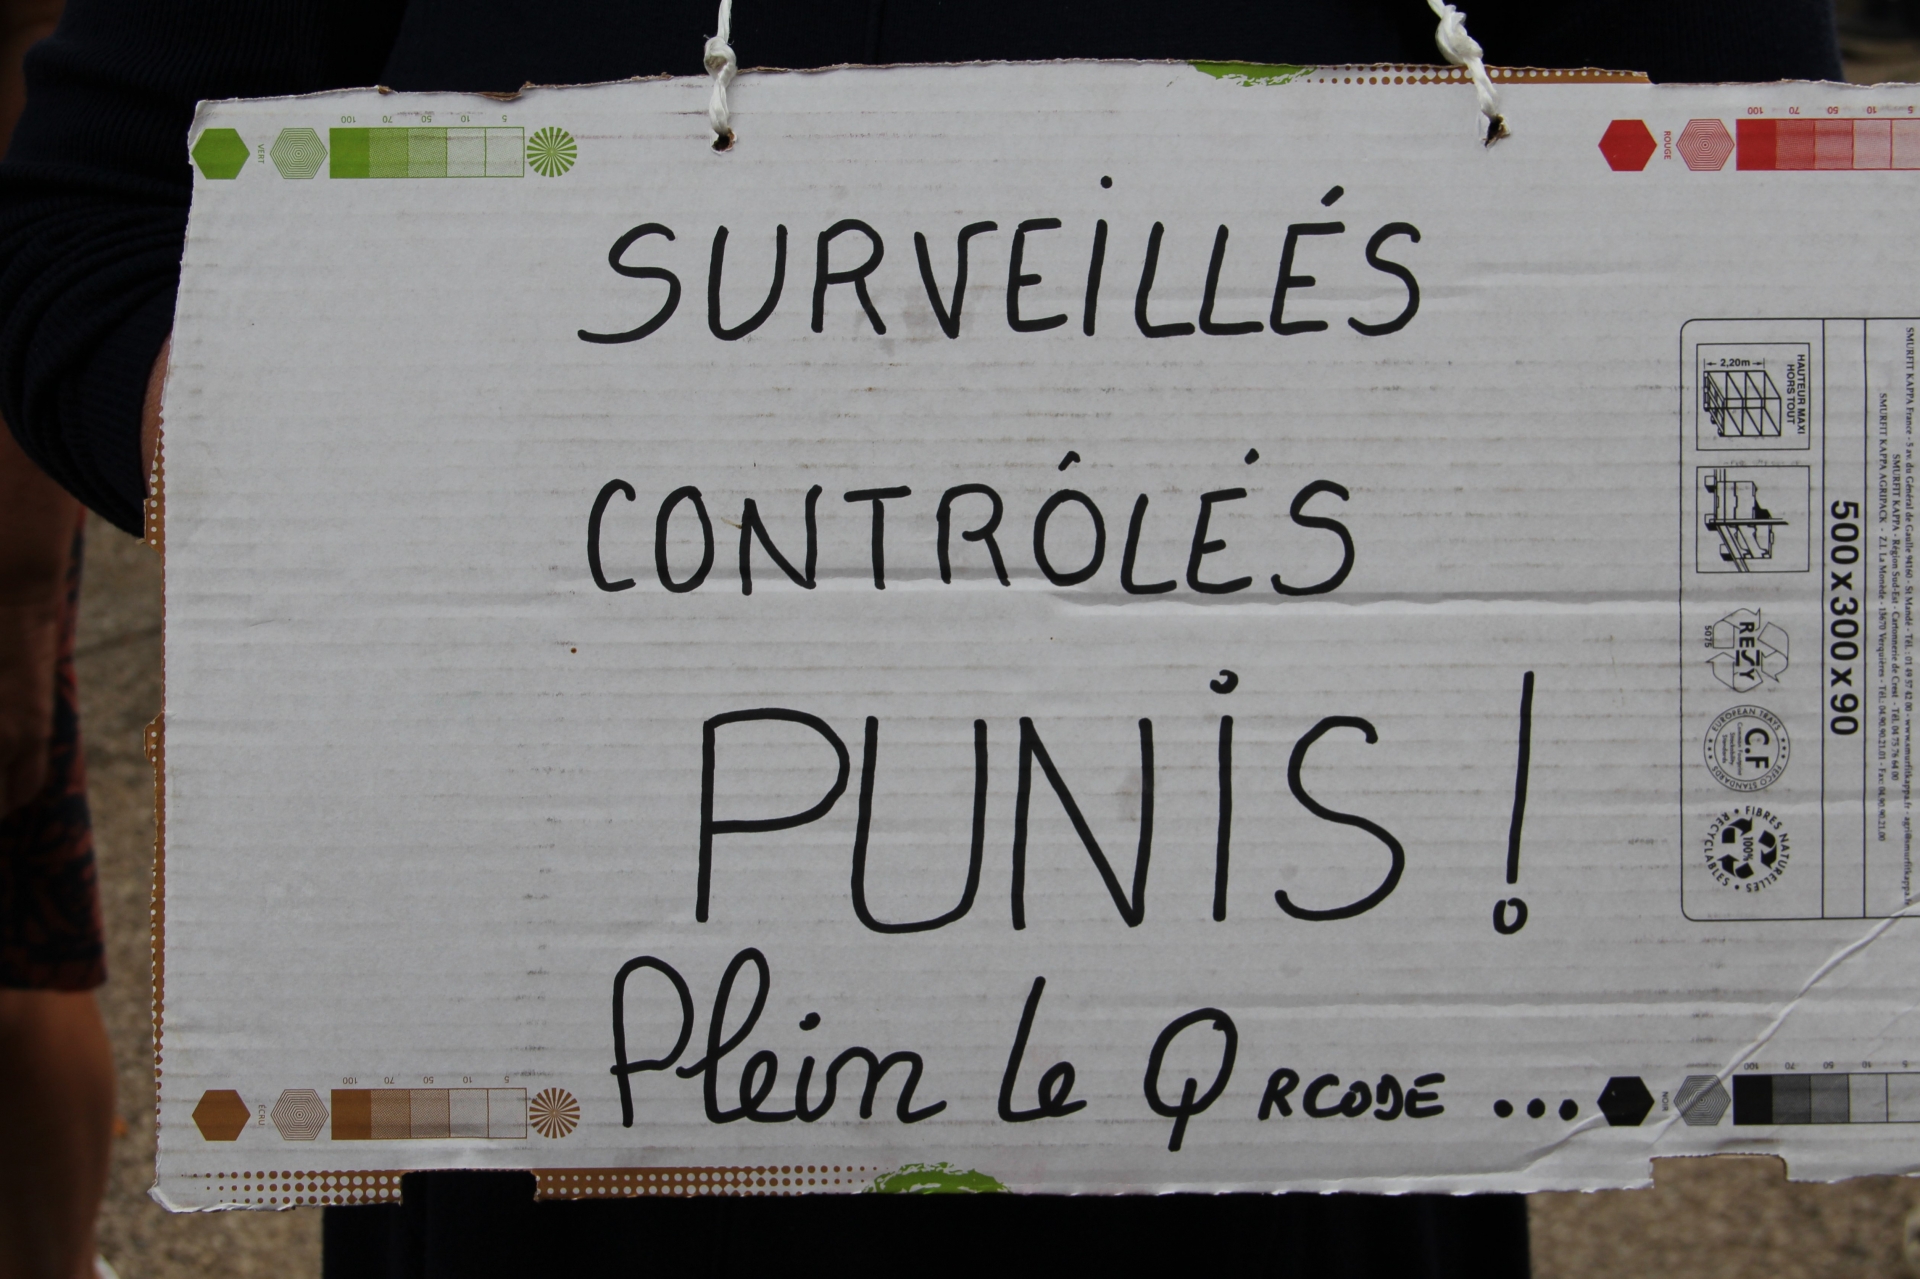 SURVEILLÉS
CONTRÓLÉS
PUNIS !
Plein le QRCODE ...
100 70 50 10 5
VERT
100 70 50 10 5
ROUGE
100 70 50 10 5
ÉCRU
100 70 50 10 5
NOIR
HAUTEUR MAXI
HORS TOUT
2,20m
RESY
5075
EUROPEAN TRAYS
C.F
FEFCO STANDARDS
FIBRES NATURELLES
100%
RECYCLABLES
500 x 300 x 90
SMURFIT KAPPA France - 5 av. du Général de Gaulle 94160 - St Mandé - Tél. : 01 49 57 42 00 - www.smurfitkappa.fr
SMURFIT KAPPA - Région Sud-Est - Cartonnerie de Crest - Tél. 04 75 76 64 00
SMURFIT KAPPA AGRIPACK - Z.I. La Monède - 13670 Verquières - Tél. : 04.90.90.21.01 - Fax: 04.90.90.21.00